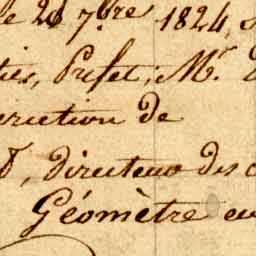 le 20 7.bre 1824, 
Préfet; Mr.
direction de
, directeur des c
Géomètre en